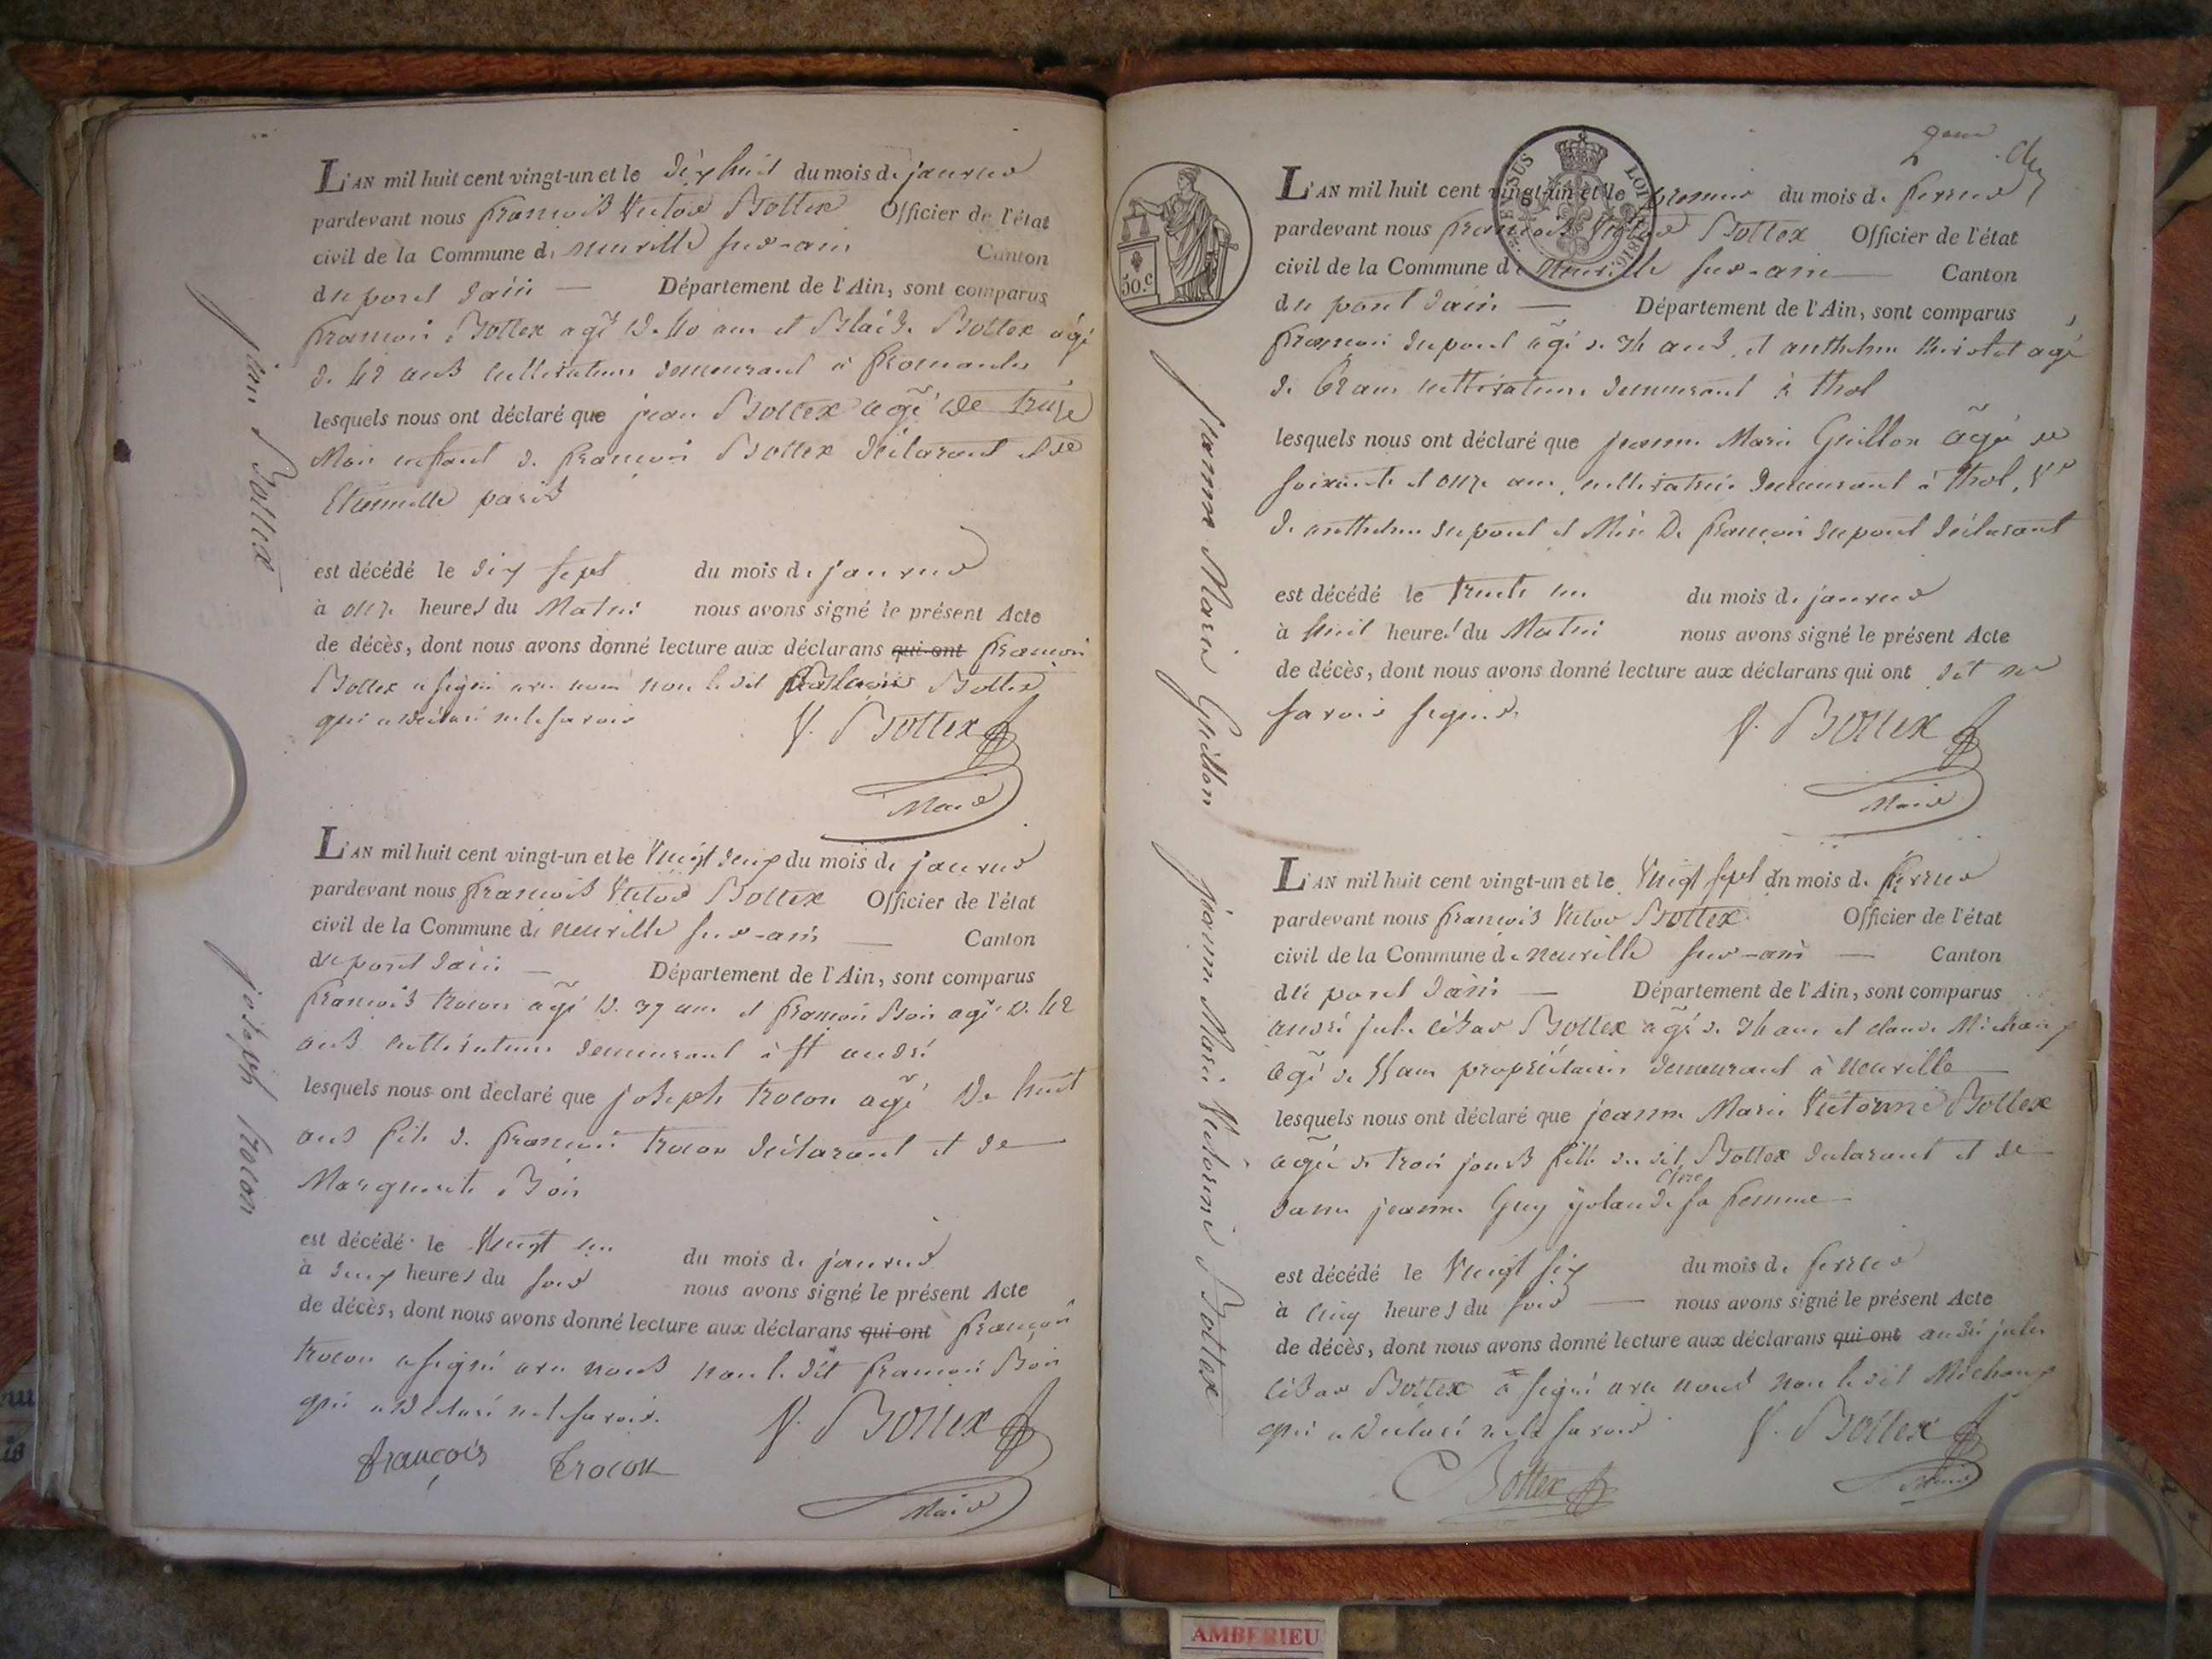 L'AN mil huit cent vingt-un et le dix huit du mois de janvier
pardevant nous françois Victor Bottex Officier de l'état
civil de la Commune de neuville sur-ain Canton
du pont dain — Département de l'Ain, sont comparus
françois Bottex agé de 40 ans et Blaise Bottex agé
de 42 ans cultivateurs demeurant à fromentes
lesquels nous ont déclaré que jean Bottex agé de treize
Mois enfant de françois Bottex déclarant et de
Etiennette paris
est décédé le dix sept du mois de janvier
à onze heures du Matin nous avons signé le présent Acte
de décès, dont nous avons donné lecture aux déclarans qui ont françois
Bottex a signé avec nous non le dit Bottex
qui a déclaré ne le savoir V. Bottex
Maire
jean Bottex
L'AN mil huit cent vingt-un et le Vingt deux du mois de janvier
pardevant nous françois Victor Bottex Officier de l'état
civil de la Commune de neuville sur-ain — Canton
du pont dain — Département de l'Ain, sont comparus
françois trocon agé de 37 ans et françois Boin agé de 42
ans cultivateurs demeurant à st andré
lesquels nous ont déclaré que joseph trocon agé de huit
ans fils de françois trocon déclarant et de
Marguerite Boin
est décédé le Vingt un du mois de janvier
à deux heures du soir nous avons signé le présent Acte
de décès, dont nous avons donné lecture aux déclarans qui ont françois
trocon a signé avec nous non le dit francois Boin
qui a déclaré ne le savoir. V. Bottex
françois trocon
Maire
joseph trocon
2eme
L'AN mil huit cent vingt-un et le premier du mois de fevrier
pardevant nous francois Victor Bottex Officier de l'état
civil de la Commune de Neuville sur-ain — Canton
du pont dain — Département de l'Ain, sont comparus
françois dupont agé de 34 ans et anthelme agé
de 62 ans cultivateurs demeurant à thol
lesquels nous ont déclaré que jeanne Marie Guillon agée de
soixante et onze ans, cultivatrice demeurant à thol, Ve
de anthelme dupont et Mère De françois dupont déclarant
est décédé le trente un du mois de janvier
à huit heures du Matin nous avons signé le présent Acte
de décès, dont nous avons donné lecture aux déclarans qui ont dit ne
savoir signer. V. Bottex
Maire
50.C
LOI 1816
jeanne Marie Guillon
L'AN mil huit cent vingt-un et le Vingt sept du mois de fevrier
pardevant nous francois Victor Bottex Officier de l'état
civil de la Commune de neuville sur-ain — Canton
du pont dain — Département de l'Ain, sont comparus
andré jules césar Bottex agé de 34 ans et claude Michaux
agé de 55 ans propriétaires demeurant à neuville
lesquels nous ont déclaré que jeanne Marie Victorine Bottex
agée de trois jours fille du dit Bottex declarant et de
dame jeanne Guy yolande Clre sa femme
est décédé le Vingt six du mois de fevrier
à cinq heures du soir — nous avons signé le présent Acte
de décès, dont nous avons donné lecture aux déclarans qui ont andré jules
césar Bottex a signé avec nous non le dit Michaux
qui a déclaré ne le savoir V. Bottex
Bottex
Maire
jeanne Marie Victorine Bottex
AMBERIEU